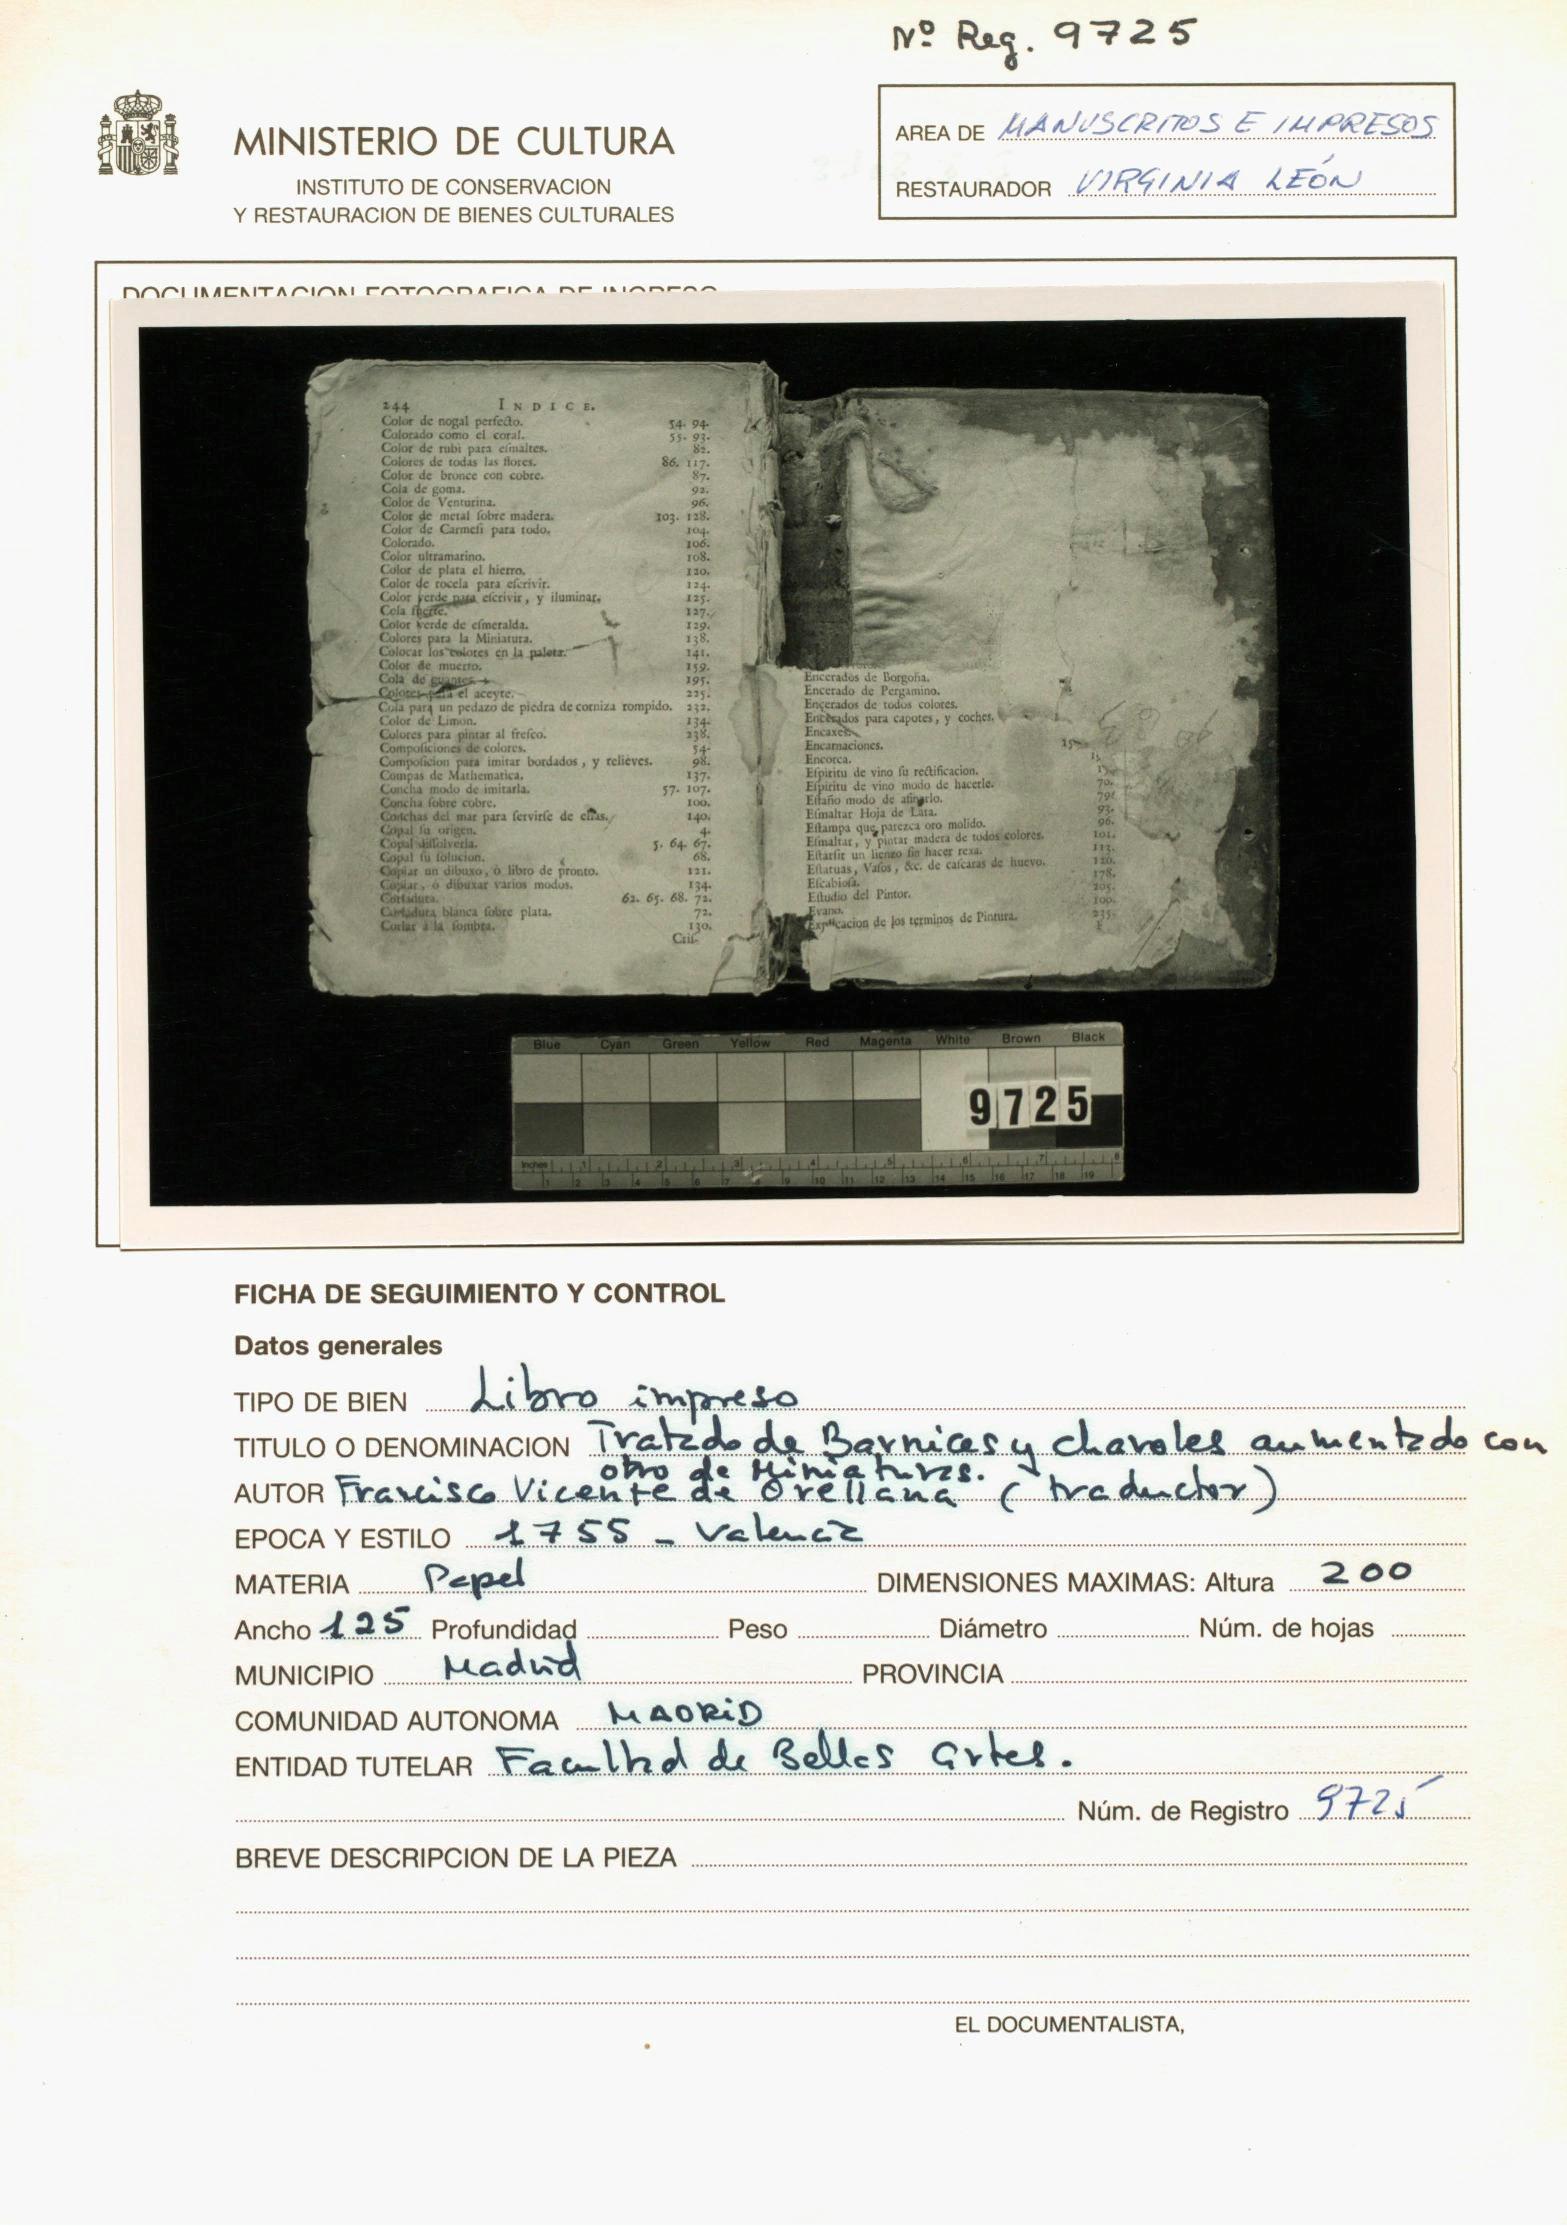 Nº Reg. 9725
MINISTERIO DE CULTURA
INSTITUTO DE CONSERVACION
Y RESTAURACION DE BIENES CULTURALES
AREA DE MANUSCRITOS E IMPRESOS
RESTAURADOR VIRGINIA LEÓN
DOCUMENTACION FOTOGRAFICA DE INGRESO
244 INDICE.
Color de nogal perfecto. 54. 94.
Colorado como el coral. 55. 93.
Color de rubi para eſmaltes. 82.
Colores de todas las flores. 86. 117.
Color de bronce con cobre. 87.
Cola de goma. 92.
Color de Venturina. 96.
Color de metal ſobre madera. 103. 128.
Color de Carmeſi para todo. 104.
Colorado. 106.
Color ultramarino. 108.
Color de plata el hierro. 120.
Color de rocela para eſcrivir. 124.
Color verde para eſcrivir, y iluminar. 125.
Cola fuerte. 127.
Color verde de eſmeralda. 129.
Colores para la Miniatura. 138.
Colocar los colores en la paleta. 141.
Color de muerto. 159.
Cola de guantes. 195.
Colores para el aceyte. 225.
Cola para un pedazo de piedra de corniza rompido. 232.
Color de Limon. 134.
Colores para pintar al freſco. 238.
Compoſiciones de colores. 54.
Compoſicion para imitar bordados, y relieves. 98.
Compas de Mathematica. 137.
Concha modo de imitarla. 57. 107.
Concha ſobre cobre. 100.
Conchas del mar para ſervirſe de ellas. 140.
Copal ſu origen. 4.
Copal diſſolverla. 5. 64. 67.
Copal ſu ſolucion. 68.
Copiar un dibuxo, ò libro de pronto. 121.
Copiar, ò dibuxar varios modos. 134.
Corladura. 62. 65. 68. 72.
Corladura blanca ſobre plata. 72.
Corlar à la ſombra. 130.
Criſ-
Encerados de Borgoña.
Encerado de Pergamino.
Encerados de todos colores.
Encerados para capotes, y coches.
Encaxes.
Encarnaciones.
Encorca.
Eſpiritu de vino ſu rectificacion.
Eſpiritu de vino modo de hacerle. 70.
Eſtaño modo de afinarlo. 79.
Eſmaltar Hoja de Lata. 93.
Eſtampa que parezca oro molido. 96.
Eſmaltar, y pintar madera de todos colores. 101.
Eſtarſir un lienzo ſin hacer rexa. 113.
Eſtatuas, Vaſos, &c. de caſcaras de huevo. 120.
Eſcabioſa. 178.
Eſtudio del Pintor. 205.
Evano. 100.
Explicacion de los terminos de Pintura. 235.
Blue Cyan Green Yellow Red Magenta White Brown Black
9725
Inches 1 2 3 4 5 6 7 8
1 2 3 4 5 6 7 8 9 10 11 12 13 14 15 16 17 18 19
FICHA DE SEGUIMIENTO Y CONTROL
Datos generales
TIPO DE BIEN Libro impreso
TITULO O DENOMINACION Tratado de Barnices y charoles aumentado con
otro de Miniaturas.
AUTOR Francisco Vicente de Orellana (traductor)
EPOCA Y ESTILO 1755 - Valencia
MATERIA Papel DIMENSIONES MAXIMAS: Altura 200
Ancho 125 Profundidad Peso Diámetro Núm. de hojas
MUNICIPIO Madrid PROVINCIA
COMUNIDAD AUTONOMA MADRID
ENTIDAD TUTELAR Facultad de Bellas Artes.
Núm. de Registro 9725
BREVE DESCRIPCION DE LA PIEZA
EL DOCUMENTALISTA,